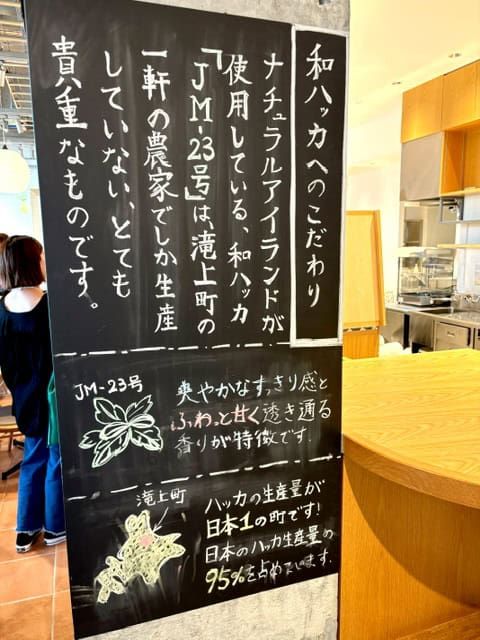 和ハッカへのこだわり
ナチュラルアイランドが
使用している、和ハッカ
「JM-23号」は、滝上町の
一軒の農家でしか生産
していない、とても
貴重なものです。
JM-23号
爽やかなすっきり感と
ふわっと甘く透き通る
香りが特徴です.
滝上町
ハッカの生産量が
日本1の町です!
日本のハッカ生産量の
95%を占めています.